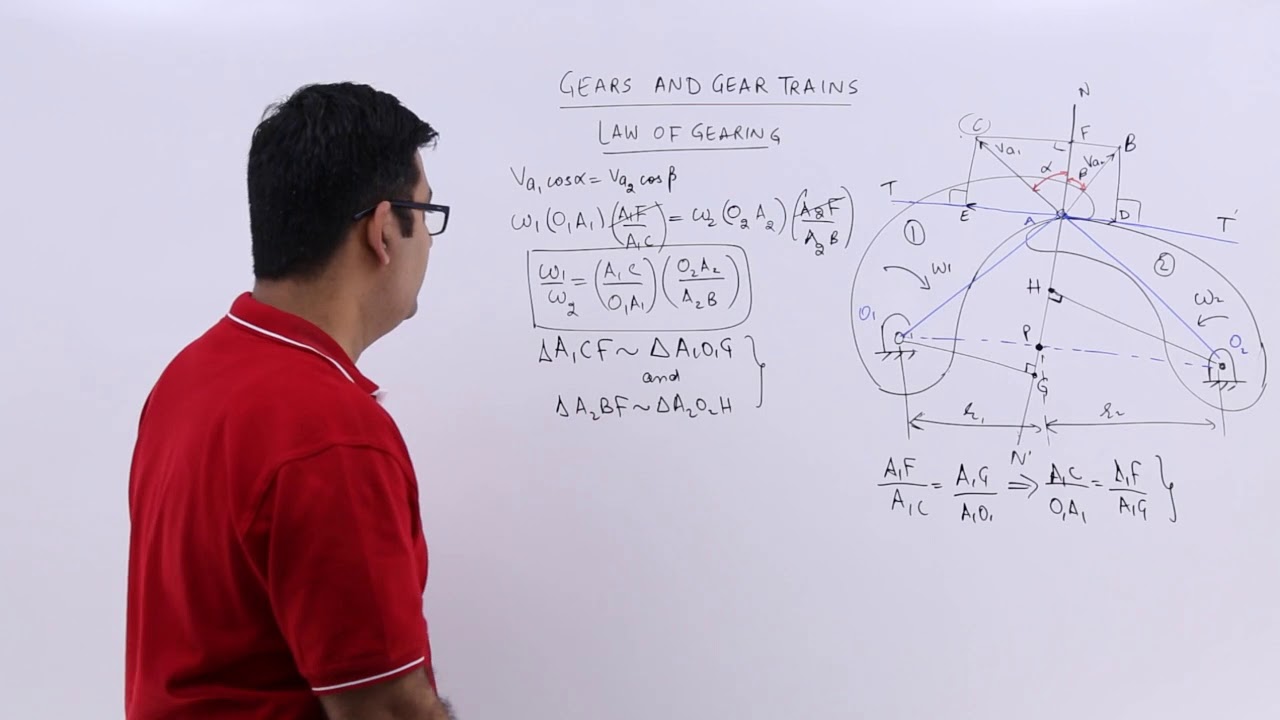 GEARS AND GEAR TRAINS
LAW OF GEARING
Va₁ cosα = Va₂ cosβ
ω₁ (O₁A₁) (A₁F/A₁C) = ω₂ (O₂A₂) (A₂F/A₂B)
ω₁/ω₂ = (A₁C/O₁A₁) (O₂A₂/A₂B)
ΔA₁CF ~ ΔA₁O₁G
and
ΔA₂BF ~ ΔA₂O₂H
N
C
F
B
Va₁
L
Va₂
α
β
T
E
A
D
T'
1
2
ω₁
H
ω₂
O₁
P
O₂
G
r₁
r₂
N'
A₁F/A₁C = A₁G/A₁O₁ ⇒ A₁C/O₁A₁ = A₁F/A₁G